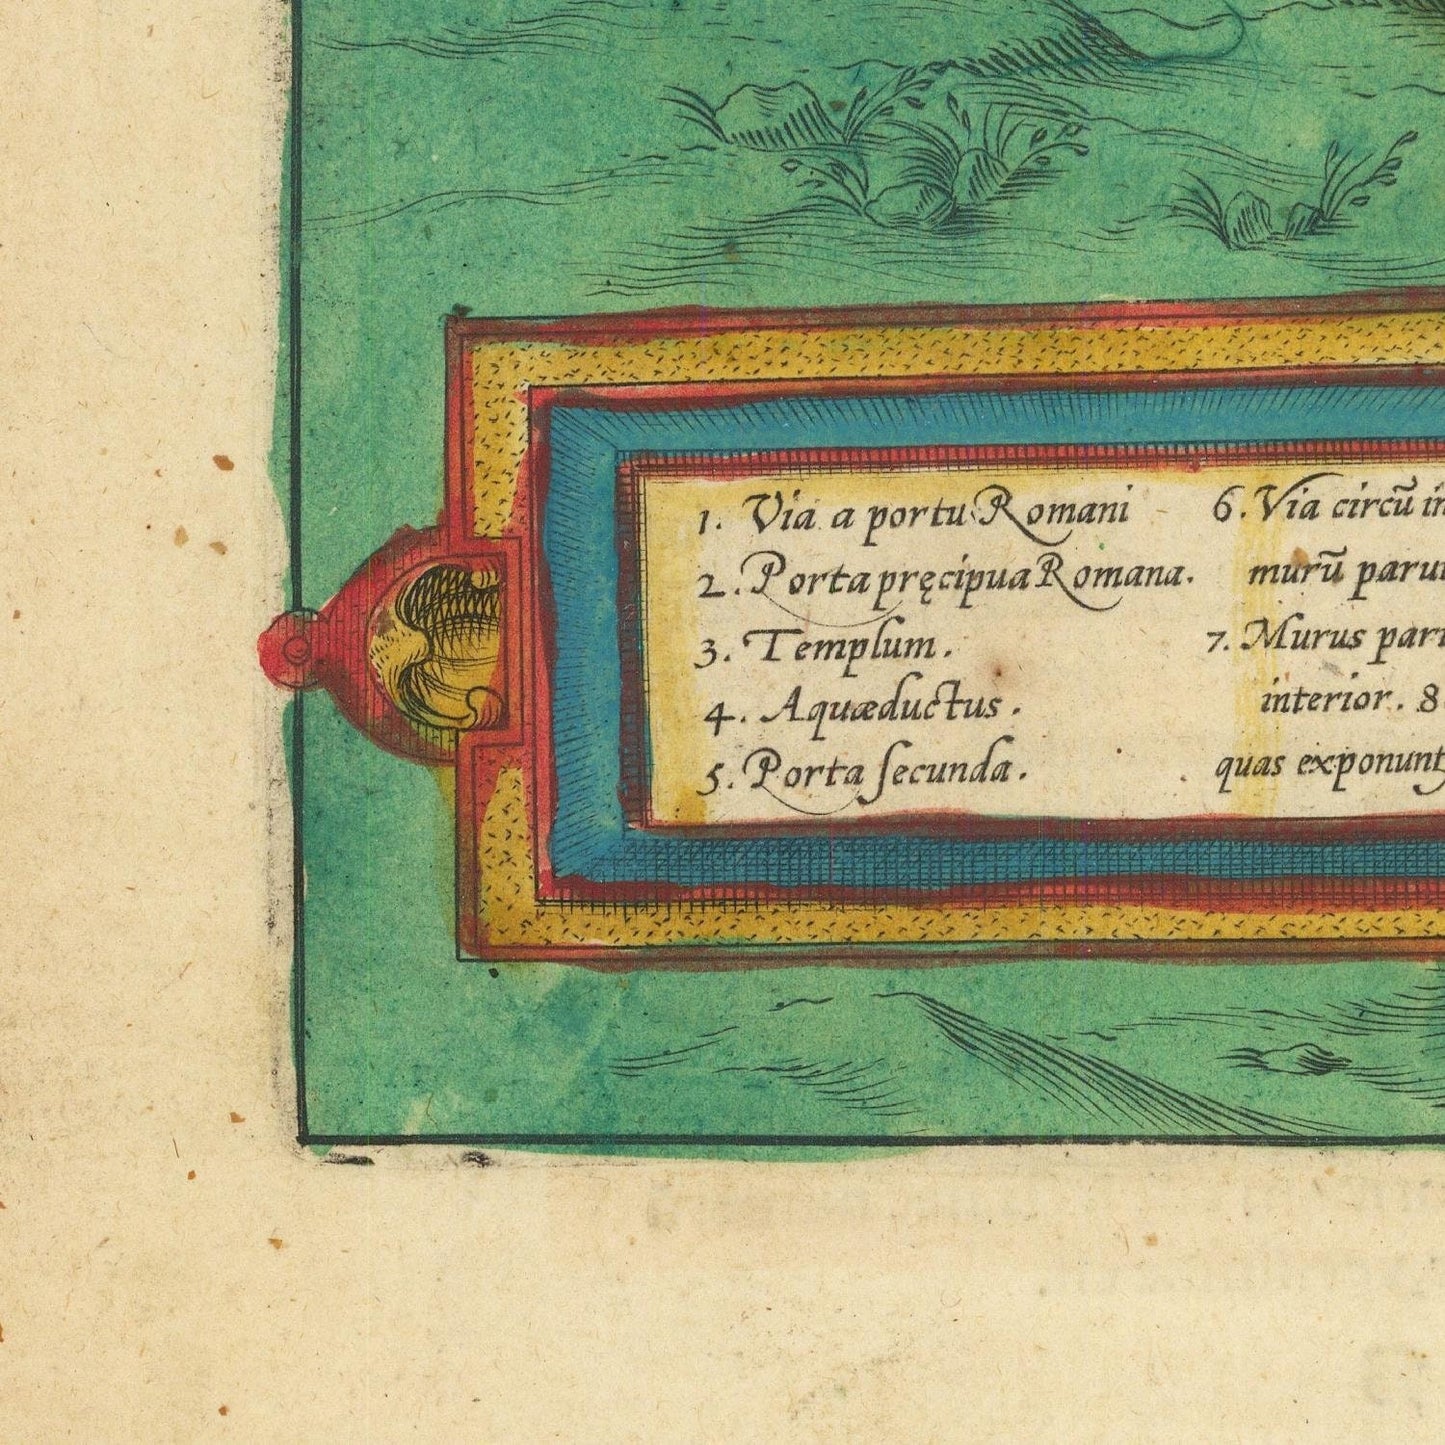 1. Via a portu Romani
2. Porta pręcipua Romana.
3. Templum.
4. Aquæductus.
5. Porta ſecunda.
6. Via circū
murū
7. Murus
interior. 8
quas